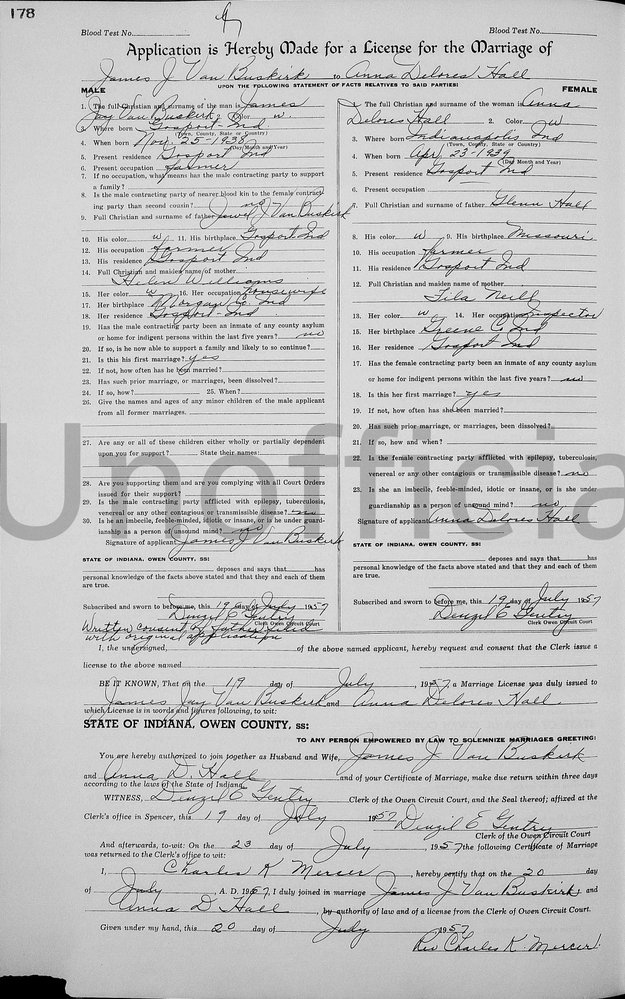 178
Blood Test No.
Blood Test No.
Application is Hereby Made for a License for the Marriage of
James J Van Buskirk to Anna Delores Hall
UPON THE FOLLOWING STATEMENT OF FACTS RELATIVE TO SAID PARTIES:
MALE
1. The full Christian and surname of the man is James
Jay Van Buskirk 2. Color w.
3. Where born Gosport Ind
(Town, County, State or Country)
4. When born Nov. 25-1938
(Day Month and Year)
5. Present residence Gosport Ind
6. Present occupation Farmer
7. If no occupation, what means has the male contracting party to support
a family?
8. Is the male contracting party of nearer blood kin to the female contract-
ing party than second cousin? no
9. Full Christian and surname of father Jewel J. Van Buskirk
10. His color w 11. His birthplace Gosport Ind
12. His occupation Farmer
13. His residence Gosport Ind
14. Full Christian and maiden name of mother
Helen Williams
15. Her color w 16. Her occupation housewife
17. Her birthplace Morgan Co Ind
18. Her residence Gosport-Ind
19. Has the male contracting party been an inmate of any county asylum
or home for indigent persons within the last five years? no
20. If so, is he now able to support a family and likely to so continue?
21. Is this his first marriage? yes
22. If not, how often has he been married?
23. Has such prior marriage, or marriages, been dissolved?
24. If so, how? 25. When?
26. Give the names and ages of any minor children of the male applicant
from all former marriages.
27. Are any or all of these children either wholly or partially dependent
upon you for support? State their names:
28. Are you supporting them and are you complying with all Court Orders
issued for their support?
29. Is the male contracting party afflicted with epilepsy, tuberculosis,
venereal or any other contagious or transmissible disease? no
30. Is he an imbecile, feeble-minded, idiotic or insane, or is he under guard-
ianship as a person of unsound mind? no
Signature of applicant James J Van Buskirk
STATE OF INDIANA, OWEN COUNTY, SS:
deposes and says that has
personal knowledge of the facts above stated and that they and each of them
are true.
Subscribed and sworn to before me, this 19 day of July 1957
Denzil E Gentry
Clerk Owen Circuit Court
Written consent of father filed
with original application
FEMALE
1. The full Christian and surname of the woman is Anna
Delores Hall 2. Color w
3. Where born Indianapolis Ind
(Town, County, State or Country)
4. When born Apr. 23-1939
(Day Month and Year)
5. Present residence Gosport Ind
6. Present occupation
7. Full Christian and surname of father Glenn Hall
8. His color w 9. His birthplace Missouri
10. His occupation farmer
11. His residence Gosport Ind
12. Full Christian and maiden name of mother
Lila Neill
13. Her color w 14. Her occupation Inspector
15. Her birthplace Greene Co Ind
16. Her residence Gosport Ind
17. Has the female contracting party been an inmate of any county asylum
or home for indigent persons within the last five years? no
18. Is this her first marriage? yes
19. If not, how often has she been married?
20. Has such prior marriage, or marriages, been dissolved?
21. If so, how and when?
22. Is the female contracting party afflicted with epilepsy, tuberculosis,
venereal or any other contagious or transmissible disease? no
23. Is she an imbecile, feeble-minded, idiotic or insane, or is she under
guardianship as a person of unsound mind? no
Signature of applicant Anna Delores Hall
STATE OF INDIANA, OWEN COUNTY, SS:
deposes and says that has
personal knowledge of the facts above stated and that they and each of them
are true.
Subscribed and sworn to before me, this 19 day of July 1957
Denzil E Gentry
Clerk Owen Circuit Court
I, the undersigned, of the above named applicant, hereby request and consent that the Clerk issue a
license to the above named
BE IT KNOWN, That on the 19 day of July, 1957, a Marriage License was duly issued to
James Jay Van Buskirk and Anna Delores Hall
which License is in words and figures following, to wit:
STATE OF INDIANA, OWEN COUNTY, SS:
TO ANY PERSON EMPOWERED BY LAW TO SOLEMNIZE MARRIAGES GREETING:
You are hereby authorized to join together as Husband and Wife, James J Van Buskirk
and Anna D. Hall and of your Certificate of Marriage, make due return within three days
according to the laws of the State of Indiana.
WITNESS, Denzil E Gentry Clerk of the Owen Circuit Court, and the Seal thereof; affixed at the
Clerk's office in Spencer, this 19 day of July 1957
Denzil E Gentry
Clerk of the Owen Circuit Court
And afterwards, to-wit: On the 23 day of July, 1957 the following Certificate of Marriage
was returned to the Clerk's office to wit:
I, Charles K Mercer, hereby certify that on the 20 day
of July, A. D. 1957, I duly joined in marriage James J Van Buskirk and
Anna D Hall, by authority of law and of a license from the Clerk of Owen Circuit Court.
Given under my hand, this 20 day of July 1957
Rev Charles K. Mercer
Unofficia